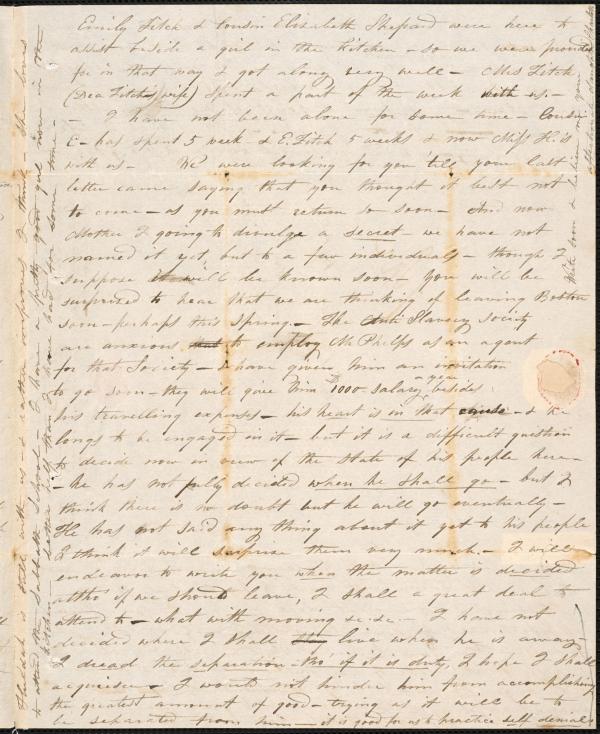 Emily Fitch & Cousin Elizabeth Shepard were here to
assist beside a girl in the kitchen - so we were provided
for in that way & got along very well - Mrs Fitch
(Dea Fitch's wife) spent a part of the week with us. -
- I have not been alone for some time - Cousin
E - has spent 5 week & E. Fitch 5 weeks & now Miss H. is
with us - We were looking for you till your last
letter came saying that you thought it best not
to come - as you must return so soon - And now
Mother I going to divulge a secret - we have not
named it yet, but to a few individuals - though I
suppose it will be known soon - You will be
surprized to hear that we are thinking of leaving Boston
soon - perhaps this Spring. - The Anti Slavery Society
are anxious to employ Mr Phelps as an agent
for that Society - & have given him an invitation
to go soon - they will give him $1000 salary a year besides
his travelling expenses - his heart is in that cause - & he
longs to be engaged in it - but it is a difficult question
to decide now in view of the state of his people here -
- he has not fully decided when he shall go - but I
think there is no doubt but he will go eventually -
He has not said any thing about it yet to his people
I think it will surprise them very much. - I will
endeavor to write you when the matter is decided
altho' if we should leave, I shall a great deal to
attend to - what with moving &c &c - I have not
decided where I shall live when he is away -
I dread the separation - tho' if it is duty, I hope I shall
acquiesce - I would not hinder him from accomplishing
the greatest amount of good - trying as it will be to
be separated from him - it is good for us to practice self denial
still with us - & often I think - She loves
to attend the Sabbath School - I have a pretty good girl now in the
kitchen - better than I have had for some time -
Write soon & believe me your